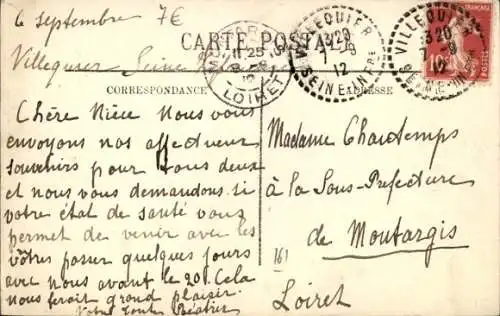 6 septembre 7E
CARTE POSTALE
Villequier Seine
CORRESPONDANCE
ADRESSE
Chère Nièce Nous vous
envoyons nos affectueux
souvenirs pour tous deux
et nous vous demandons si
votre état de santé vous
permet de venir avec les
vôtres passer quelques jours
avec nous avant le 20. Cela
nous ferait grand plaisir.
Votre Tante Béatrix
Madame Chautemps
à la Sous-Préfecture
de Montargis
161
Loiret
LOIRET
VILLEQUIER
1320
7-9
12
SEINE INFRE
VILLEQUIER
1320
7-9
12
10